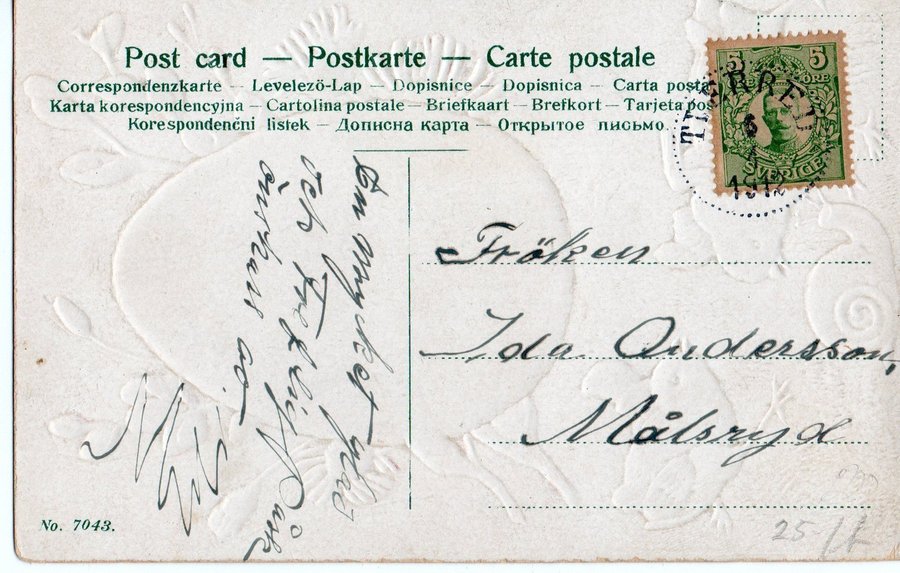 Post card — Postkarte — Carte postale
Correspondenzkarte — Levelező-Lap — Dopisnice — Dopisnica — Carta posta
Karta korespondencyjna — Cartolina postale — Briefkaart — Brefkort — Tarjeta pos
Korespondenční listek — Дописна карта — Открытое письмо.
5 5
ÖRE
SVERIGE
6
1912
En Mycket glad
och Fröhlig Påsk
önskas av
Fröken
Ida Andersson,
Målsryd
No. 7043.
25-